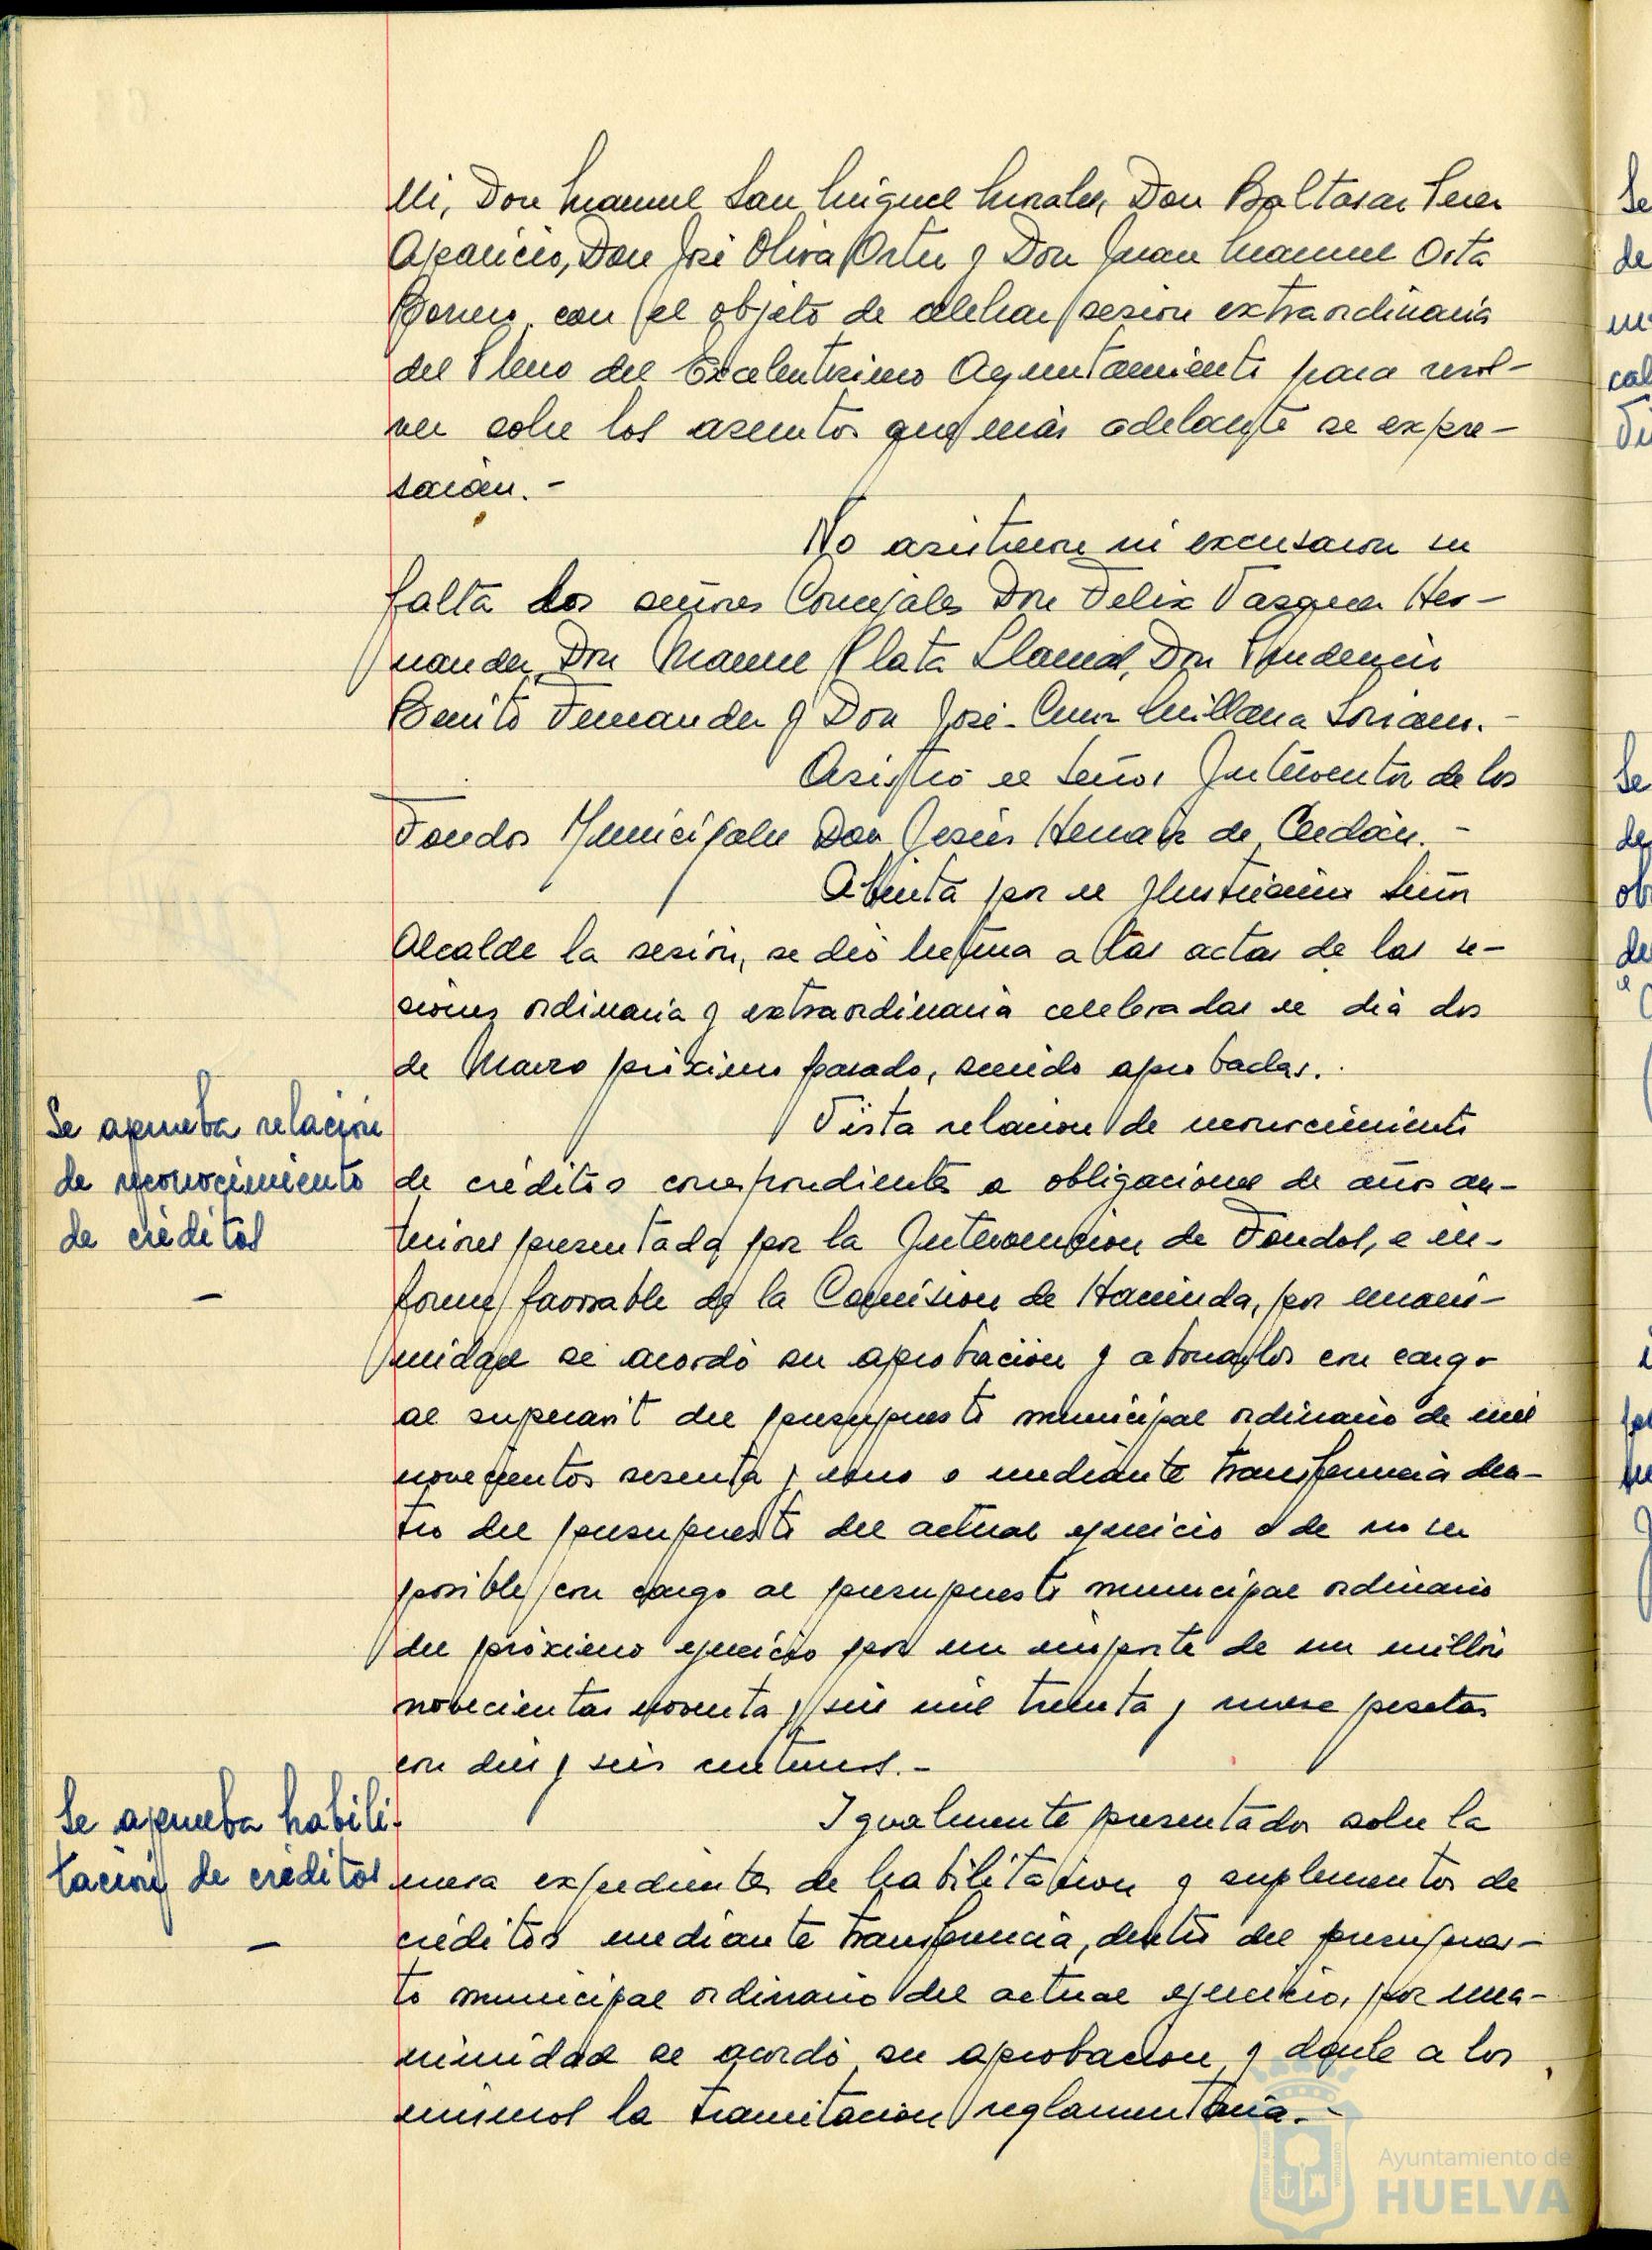 lli, Don Manuel San Miguel Morales, Don Baltasar Perez
Aparicio, Don José Oliva Ortiz y Don Juan Manuel Orta
Borrero, con el objeto de celebrar sesion extraordinaria
del Pleno del Excelentisimo Ayuntamiento para resol-
ver sobre los asuntos que más adelante se expre-
sarán.-
No asistieron ni excusaron su
falta los señores Concejales Don Felix Vazquez Her-
nandez, Don Manuel Plata Llamas, Don Prudencio
Benito Fernandez y Don José-Cruz Millana Soriano.-
Asistió el Señor Interventor de los
Fondos Municipales Don Jesús Hernaiz de Cerdán.-
Abierta por el Ilustrisimo Señor
Alcalde la sesión, se dió lectura a las actas de las se-
siones ordinaria y extraordinaria celebradas el dia dos
de Marzo próximo pasado, siendo aprobadas.
Se aprueba relación
de reconocimiento
de créditos
-
Vista relacion de reconocimiento
de créditos correspondientes a obligaciones de años an-
teriores presentada por la Intervencion de Fondos, e in-
forme favorable de la Comision de Hacienda, por unani-
midad se acordó su aprobación y abonarlos con cargo
al superavit del presupuesto municipal ordinario de mil
novecientos sesenta y uno o mediante transferencia den-
tro del presupuesto del actual ejercicio o de no ser
posible con cargo al presupuesto municipal ordinario
del próximo ejercicio por un importe de un millón
novecientas noventa y seis mil treinta y nueve pesetas
con diez y seis centimos.-
Se aprueba habili-
tacion de créditos
-
Igualmente presentados sobre la
mesa expedientes de habilitacion y suplementos de
créditos mediante transferencia, dentro del presupues-
to municipal ordinario del actual ejercicio, por una-
nimidad se acordó su aprobacion y darle a los
mismos la tramitacion reglamentaria.-
Ayuntamiento de
HUELVA